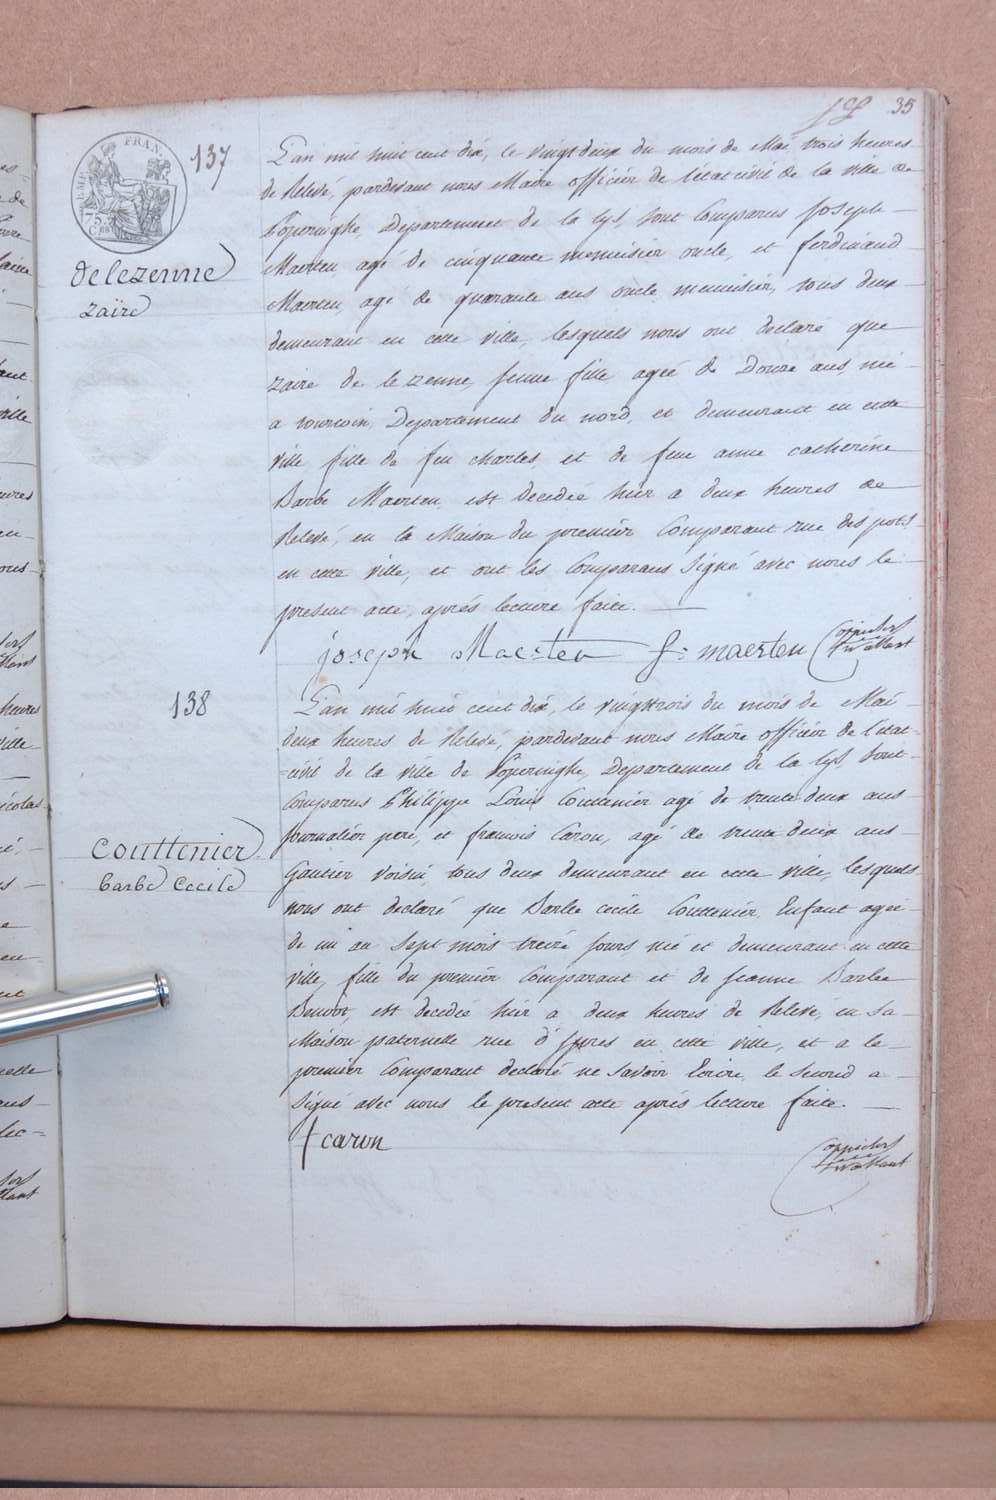 35
EMP. FRAN.
75
137
delezenne
zaïre
L'an mil huit cent dix, le vingtdeux du mois de Mai trois heures
de Relevé, pardevant nous Maire officier de l'état civil de la ville de
Poperinghe, Departement de la Lys, sont Comparus Joseph
Maerten agé de cinquante menuisier oncle, et ferdinand
Maerten, agé de quarante ans oncle menuisier, tous deux
demeurant en cette ville, lesquels nous ont declaré que
zaire de lezenne jeune fille agée de Douze ans, née
a tourcoin, Departement du nord, et demeurant en cette
ville fille de feu charles, et de feue anne catherine
Barbe Maerten, est decedée hier a deux heures de
Relevé, en la Maison du premier Comparant rue des pots
en cette ville, et ont les Comparans Signé avec nous le
present acte, aprés lecture faite.
joseph Maerten f: maerten
138
Couttenier
barbe Cecile
L'an mil huit cent dix, le vingttrois du mois de Mai
deux heures de Relevé, pardevant nous Maire officier de l'etat
civil de la ville de Poperinghe, Departement de la Lys Sont
Comparus Philippe Louis Couttenier agé de trente deux ans
Journalier pere, et francois Caron, agé de trente deux ans
Gantier Voisin, tous deux demeurant en cette ville, lesquels
nous ont declaré que Barbe cecile Couttenier, Enfant agée
de un an Sept mois treize jours, né et demeurant en cette
ville, fille du premier Comparant et de Jeanne Barbe
est decedée hier a deux heures de Relevé, en Sa
Maison paternelle rue d'Ypres en cette ville, et a le
premier Comparant declaré ne Savoir Ecrire, le Second a
Signé avec nous le present acte aprés lecture faite.
f caron